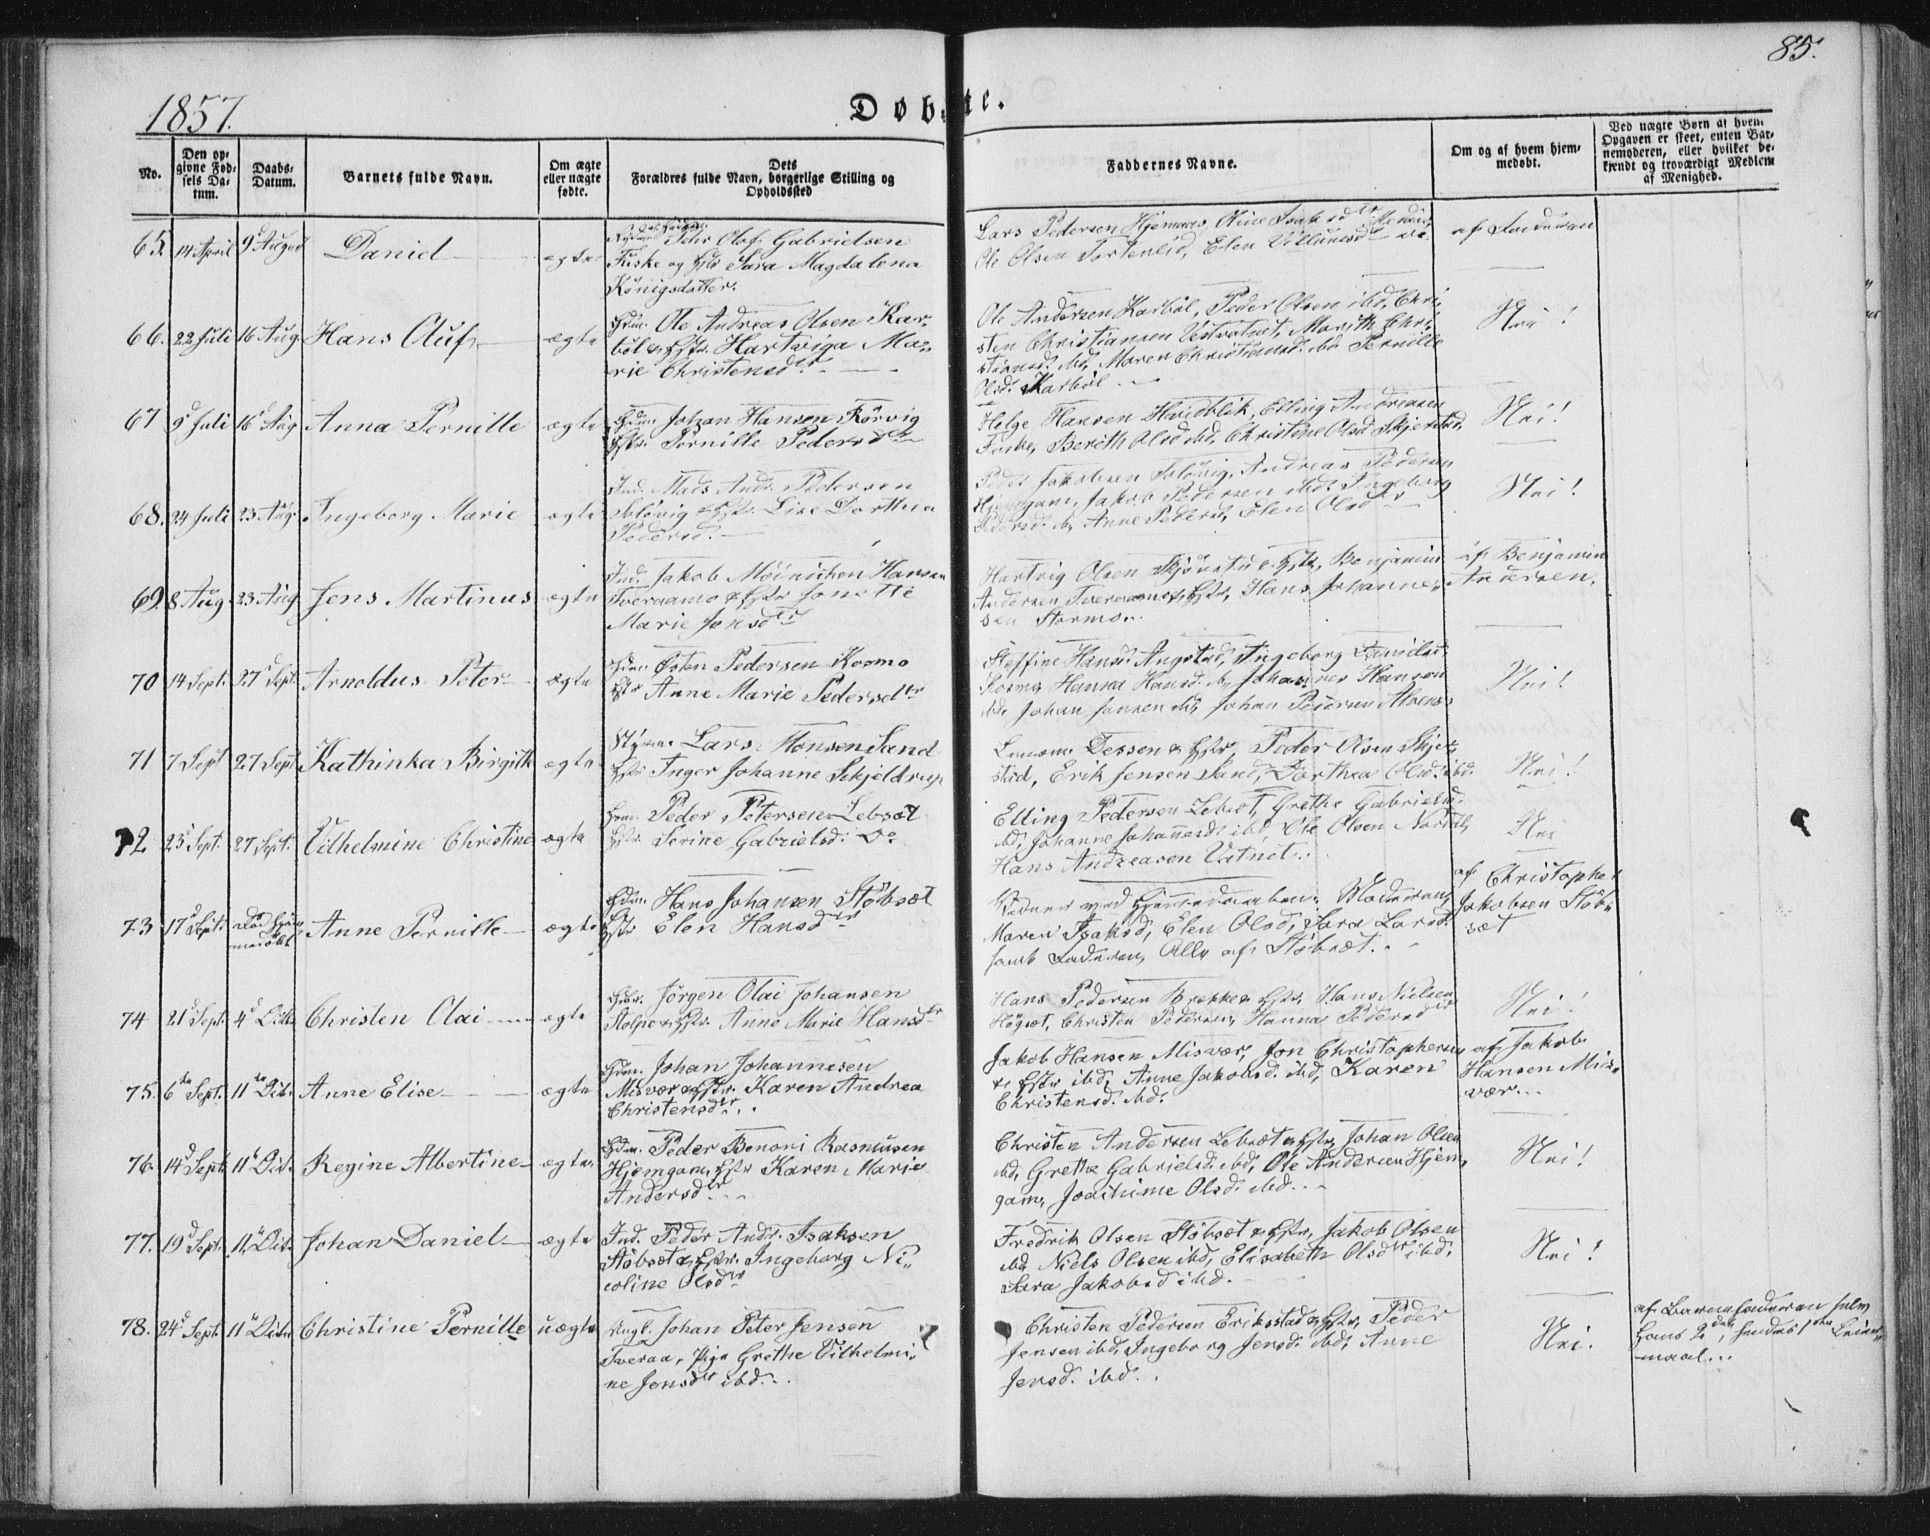 85.
1857.
Døbte.
No.
Den opgivne Fødsels Datum.
Daabs-Datum.
Barnets fulde Navn.
Om ægte eller uægte fødte.
Dets Forældres fulde Navn, borgerlige Stilling og Opholdssted
Faddernes Navne.
Om og af hvem hjemmedøbt.
Ved uægte Børn af hvem Opgaven er skeet, enten Barnemoderen, eller hvilket bekjendt og troværdigt Medlem af Menighed.
65. 14 April 9d August Daniel ægte
Pehr Olaf Gabrielsen
Fuske og Sara Magdalena
Königsdatter.
Lars Pedersen Hjemaas, Oline
Ole Olsen Elen
66. 22 Juli 16 Aug. Hans Oluf ægte
Ole Andreas Olsen Kar-
böl & Hstr. Hartviga Ma-
rie Christensdtr
Ole Andersen Karböl, Peder Olsen ibd, Chri-
sten Christiansen Vestvatnet, Marith Chri-
stiansd. ibd, Maren Christiansd. ibd Pernille
Olsd. Karböl
Nei!
67 9d Juli 16d Aug Anna Pernille ægte
Johan Hansen Rörvig
Hstr. Pernille Pedersdtr
Helge Hansen Hvidblik, Elling Andreasen
Fuske, Berith Olsd ibd, Christine Olsd Skjerstad,
Nei!
68. 24 Juli 23 Aug. Ingeborg Marie ægte
Ind. Mads Andr. Pedersen
& Hstr. Lise Dorthea
Pedersd.
Peder Jakobsen Andreas Pedersen
Hjemgam, Jakob Pedersen ibd. Ingeborg
Pedersd. ib, Anne Pedersd, Elen Olsd
Nei!
69. 8 Aug 23 Aug Jens Martinus ægte
Ind. Jakob Hansen
Tveraamo & Hstr Jonette
Marie Jonsdtr
Hartvig Olsen & Hstr, Benjamin
Andersen Tveraamo & Hstr, Hans Johanne-
sen Stormo.
af Benjamin
Andersen.
70 14 Sept. 27 Sept. Arnoldus Peter ægte
Østen Pedersen Kosmo
Hstr Anne Marie Pedersdtr
Steffine Hansd. Angstad, Ingeborg Danielsd.
Kosmo Hanna Hansd. ib, Johannes Hansen
ibd, Johan Jensen ibd, Johan Pedersen
Nei!
71 7 Sept 27 Sept Kathinka Birgitte ægte
Lars Monsen Sand
Hstr Inger Johanne Schjeldrup
Jessen & Hstr, Peder Olsen Skjer-
stad, Erik Jensen Sand, Dorthea Olsd. ibd.
Nei!
72 23d Sept. 27 Sept. Vilhelmine Christine ægte
Peder Petersen Lebsæt
Hstr. Serine Gabrielsd. Do
Elling Pedersen Lebsæt, Grethe Gabrielsd.
ibd, Johanne Johannesd. ibd, Ole Olsen
Hans Andreasen Vatnet.
Nei
73 17d Sept. Anne Pernille ægte
Hans Johansen Støbsæt
Hstr Elen Hansdtr
Vidner ved Hjemmedaaben: Moderen,
Maren Isaksd, Elen Olsd, Sara Larsd.
samt Faderen, Alle af Støbsæt.
af Christopher
Jakobsen Støb-
sæt
74 21d Sept. 4d Octb. Christen Olai ægte
Jörgen Olai Johansen
Stolpe & Hstr. Anne Marie Hansdtr
Hans Pedersen Brekke & Hstr, Hans Nielsen
Högset, Christen Pedersen, Hanna Pedersdtr
Nei!
75. 6te Sept. 11te Octb. Anne Elise ægte
Johan Johannesen
Misvær & Hstr. Karen Andrea
Christensdtr.
Jakob Hansen Misvær, Jon Christophersen
& Hstr ibd, Anne Jakobsd. ibd, Karen
Christensd. ibd.
af Jakob
Hansen Mis-
vær.
76. 14d Sept. 11te Octb. Regine Albertine ægte
Peder Benoni Rasmusen
Hjemgam, Hstr Karen Marie
Andersdtr
Christen Andersen Lebsæt & Hstr, Johan Olsen
ibd, Grethe Gabrielsd. ibd, Ole Andersen Hjem-
gam, Joachime Olsd. ibd.
Nei!
77. 19d Sept. 11te Octb. Johan Daniel ægte
Ind. Peder Andr. Isaksen
Støbsæt & Hstr. Ingeborg Ni-
coline Olsdtr
Fredrik Olsen Støbsæt & Hstr, Jakob Olsen
ibd Niels Olsen ibd, Elisabeth Olsdtr ibd.
Sara Jakobsd ibd.
Nei!
78. 24d Sept. 11te Octb. Christine Pernille uægte
Ungk. Johan Peter Jensen
Tveraa, Pige Grethe Vilhelmi-
ne Jensdtr ibd.
Christen Pedersen Erikstad & Hstr, Peder
Jensen ibd, Ingeborg Jensd. ibd, Anne
Jensd. ibd.
Nei.
af Barnefaderen selv
hans 2det, hendes 1ste Leier-
maal.